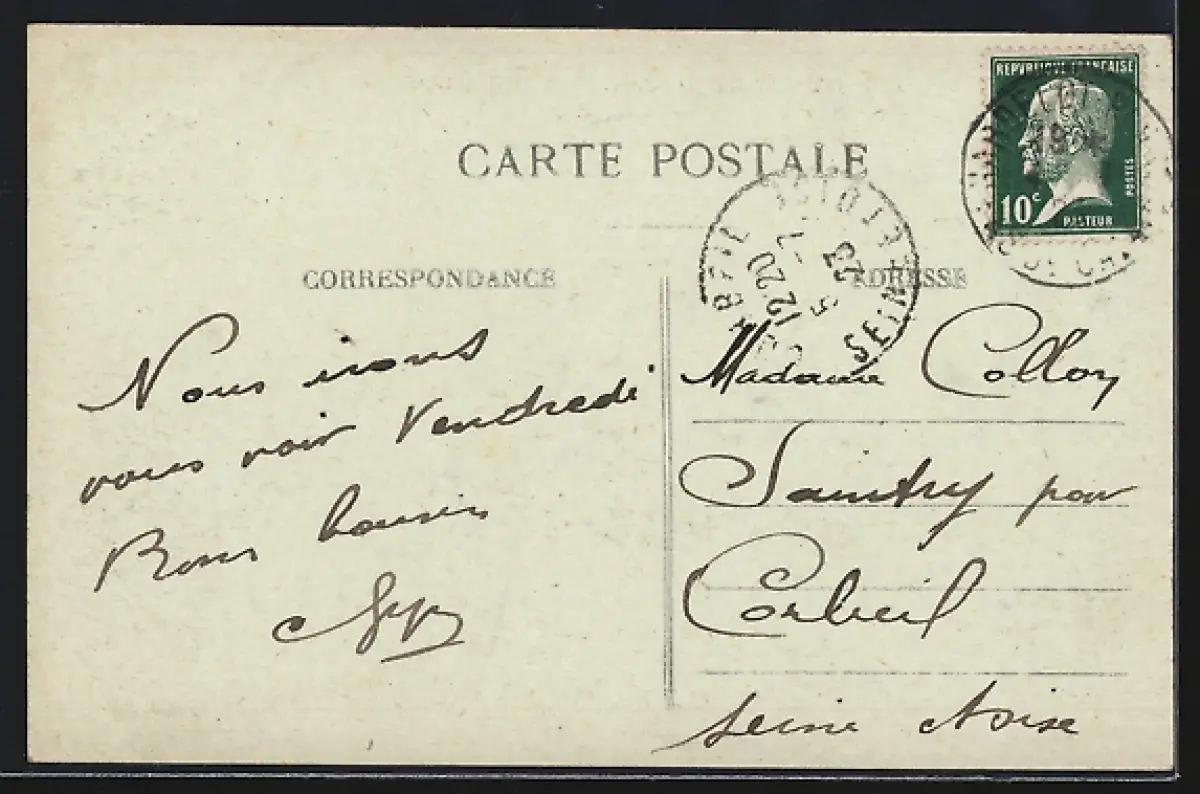 CARTE POSTALE
REPVBLIQVE FRANÇAISE
10c
PASTEUR
POSTES
CORRESPONDANCE
ADRESSE
12 20
7 - 5
23
SEINE
Nous irons
vous voir Vendredi
Bons baisers
Madame Colloy
Saintry par
Corbeil
Seine &amp; Oise